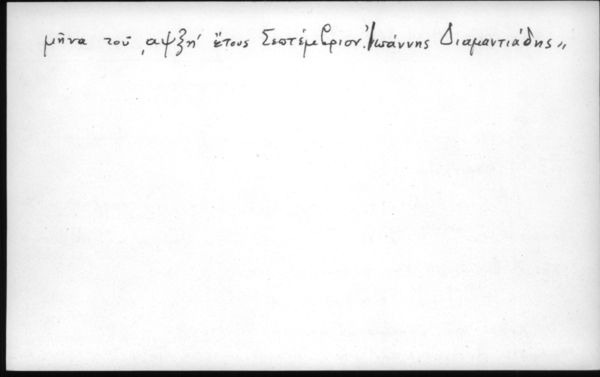 μῆνα τοῦ ͵αψξη' ἔτους Σεπτέμβριον. Ἰωάννης Διαμαντιάδης„